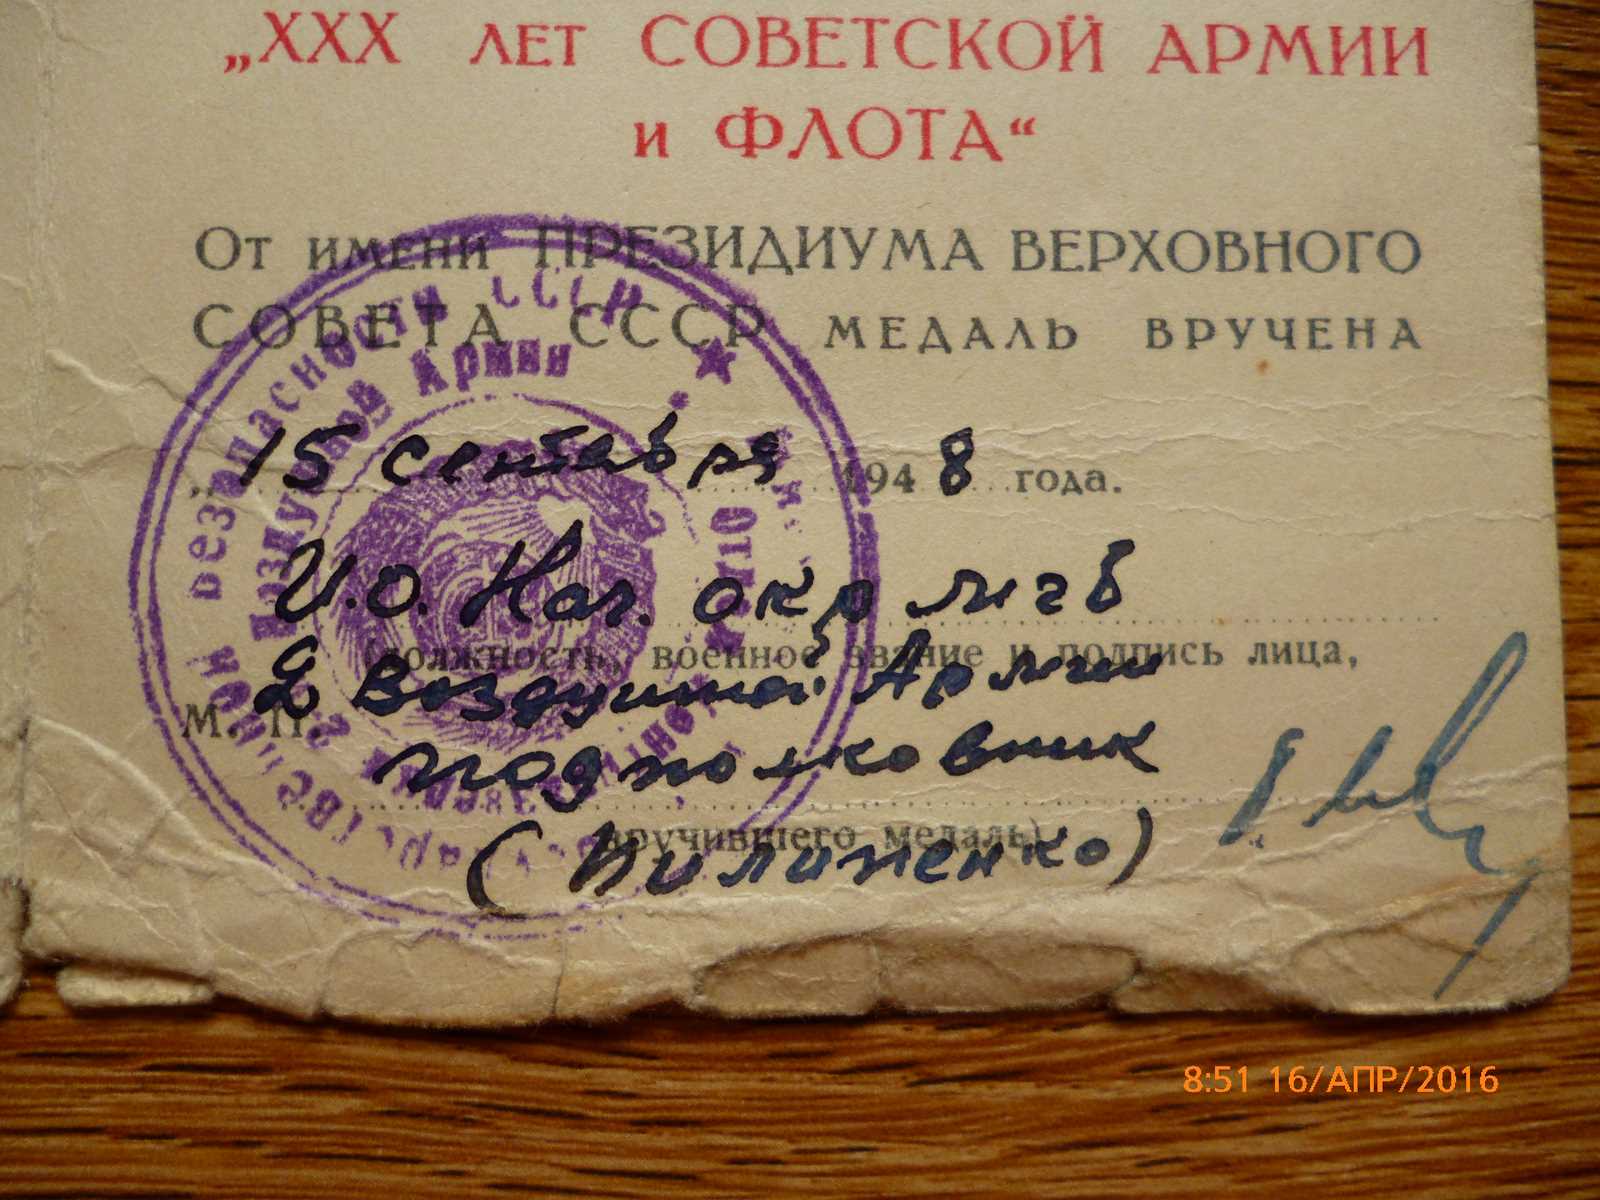 „XXX ЛЕТ СОВЕТСКОЙ АРМИИ
И ФЛОТА“
От имени ПРЕЗИДИУМА ВЕРХОВНОГО
СОВЕТА СССР МЕДАЛЬ ВРУЧЕНА
„15 сентября 1948 года.
И.О. Нач. окр мгб
(должность, военное звание и подпись лица,
2 Воздушной Армии
М. П.
подполковник
вручившего медаль)
(Пилипенко)
безопасности СССР
Воздушной Армии
8:51 16/АПР/2016